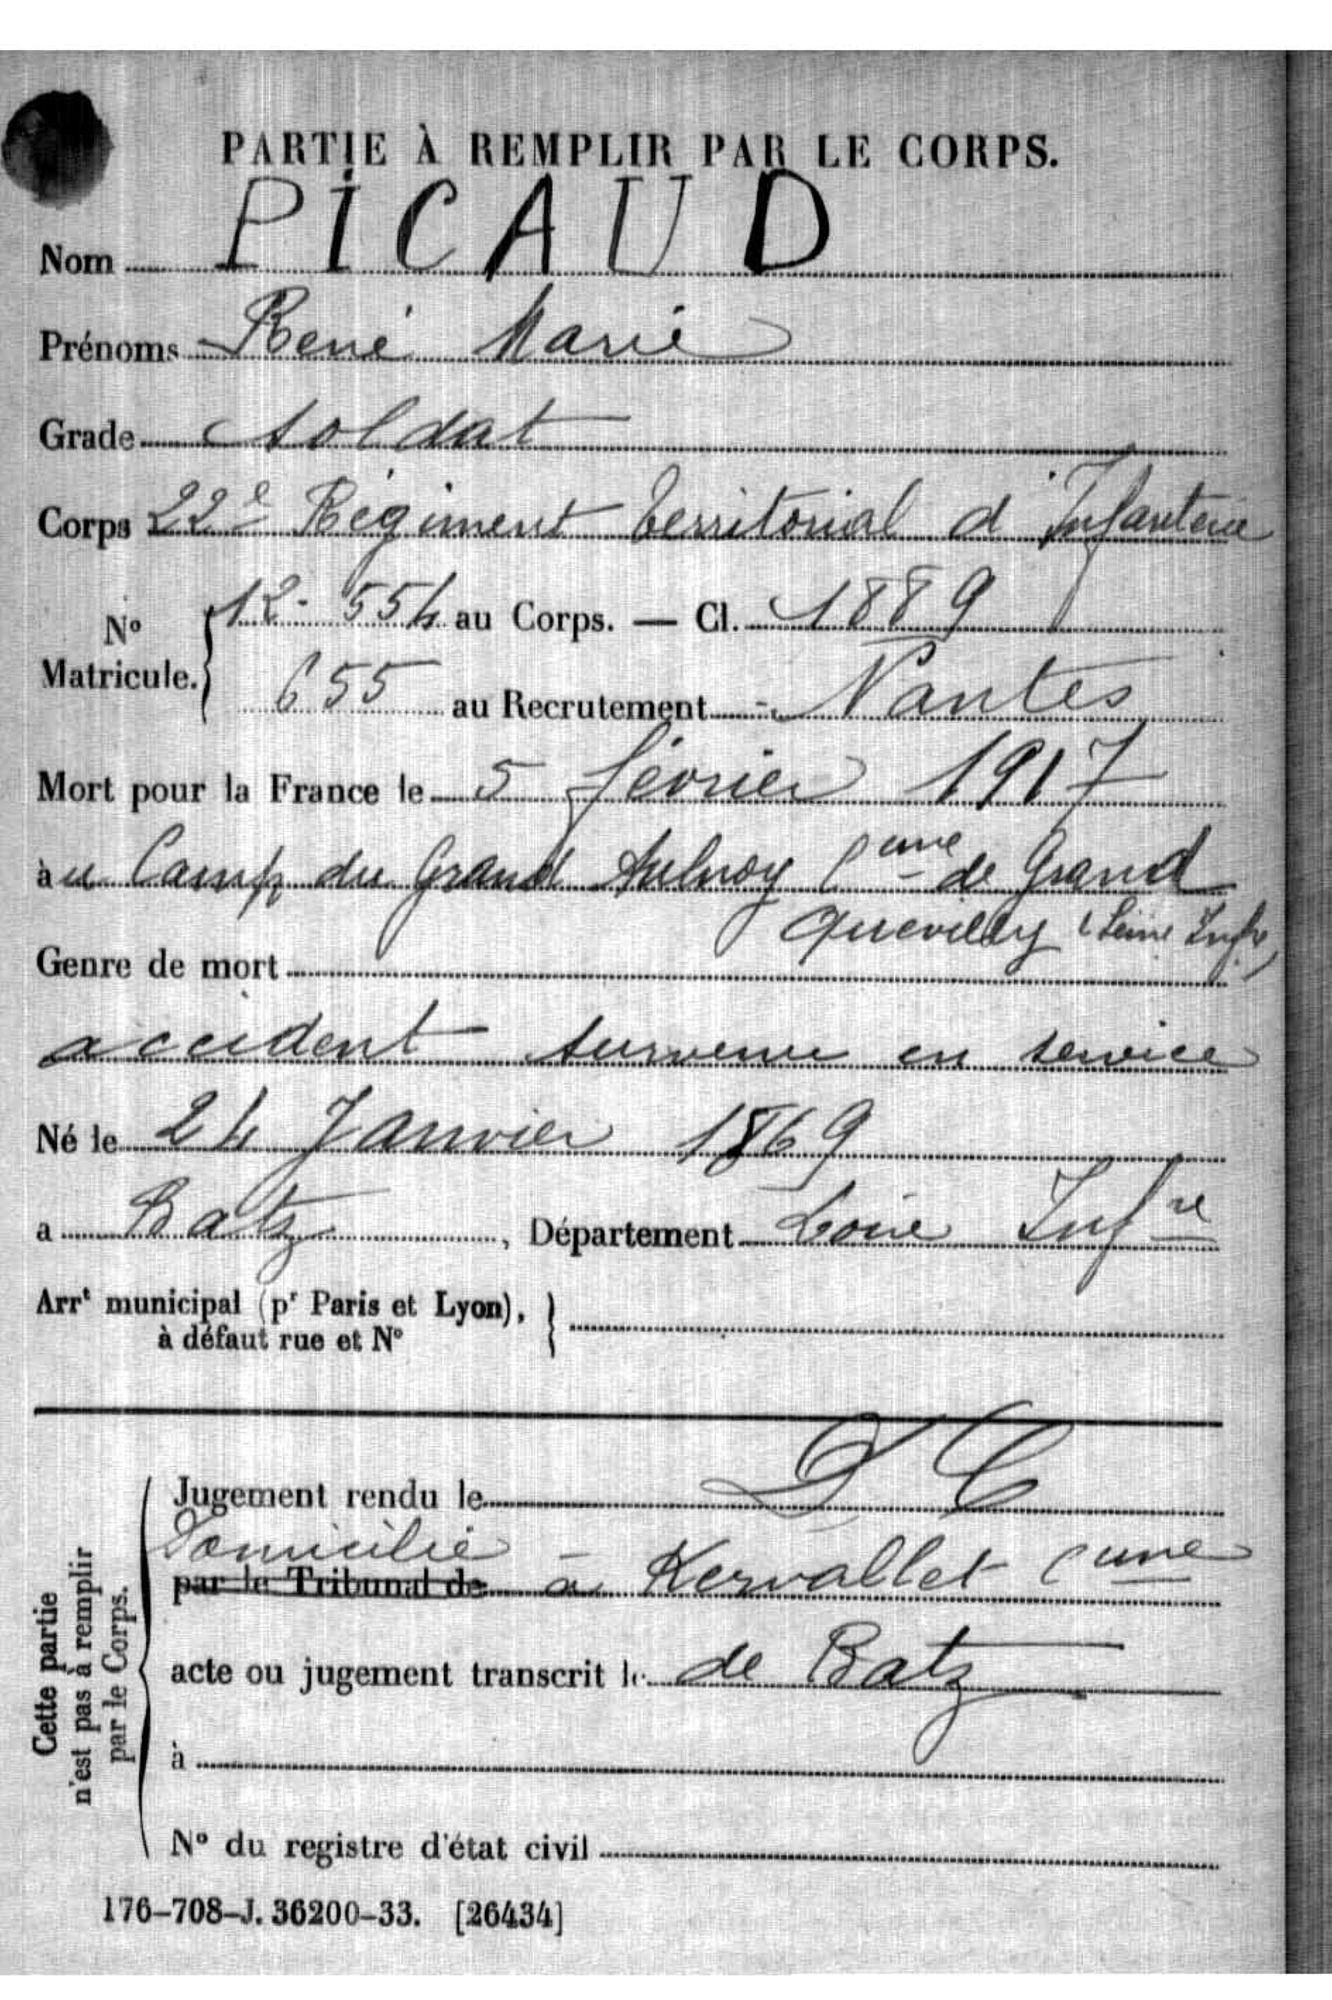 PARTIE À REMPLIR PAR LE CORPS.
Nom PICAUD
Prénoms René Marie
Grade soldat
Corps 22e Régiment territorial d'Infanterie
No Matricule. 12-554 au Corps. — Cl. 1889
655 au Recrutement Nantes
Mort pour la France le 5 février 1917
à au Camp du Grand Aulnay Cune de Grand
Quevilly (Seine Infre)
Genre de mort
accident survenu en service
Né le 24 Janvier 1869
à Batz, Département Loire Infre
Arrt municipal (pr Paris et Lyon),
à défaut rue et No
Jugement rendu le D C
Domicilié
par le Tribunal de à Kervallet Cune
acte ou jugement transcrit le de Batz
à
No du registre d'état civil
Cette partie
n'est pas à remplir
par le Corps.
176-708-J. 36200-33. [26434]